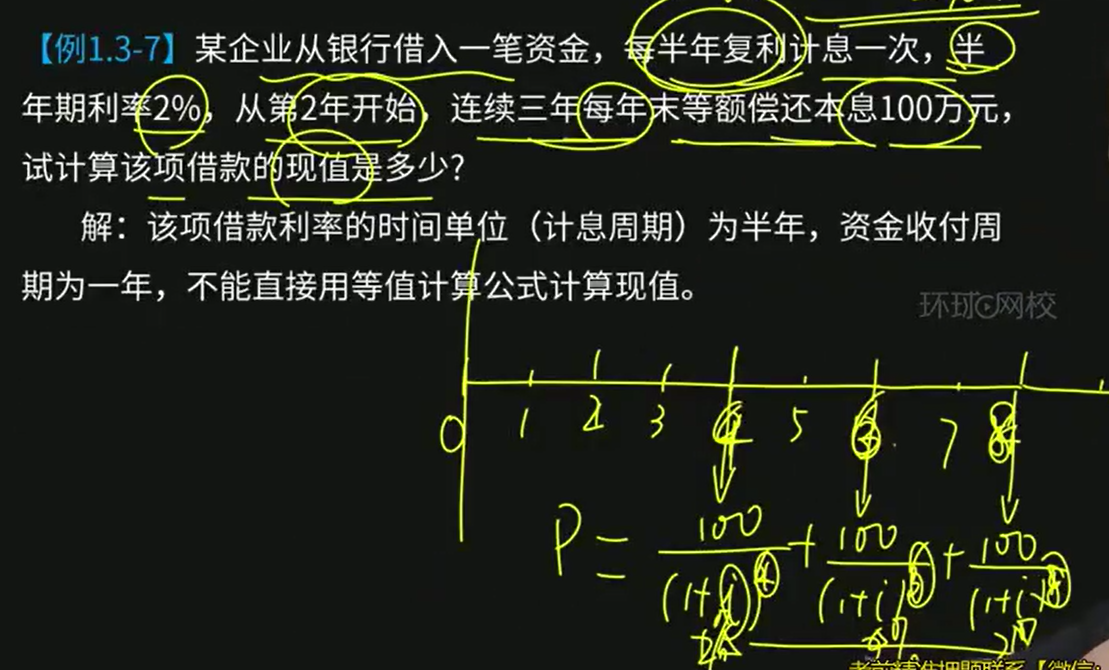 【例1.3-7】某企业从银行借入一笔资金，每半年复利计息一次，半
年期利率2%，从第2年开始，连续三年每年末等额偿还本息100万元，
试计算该项借款的现值是多少?
解：该项借款利率的时间单位（计息周期）为半年，资金收付周
期为一年，不能直接用等值计算公式计算现值。
环球网校
0 1 2 3 4 5 6 7 8
P = 100/(1+i)^4 + 100/(1+i)^6 + 100/(1+i)^8